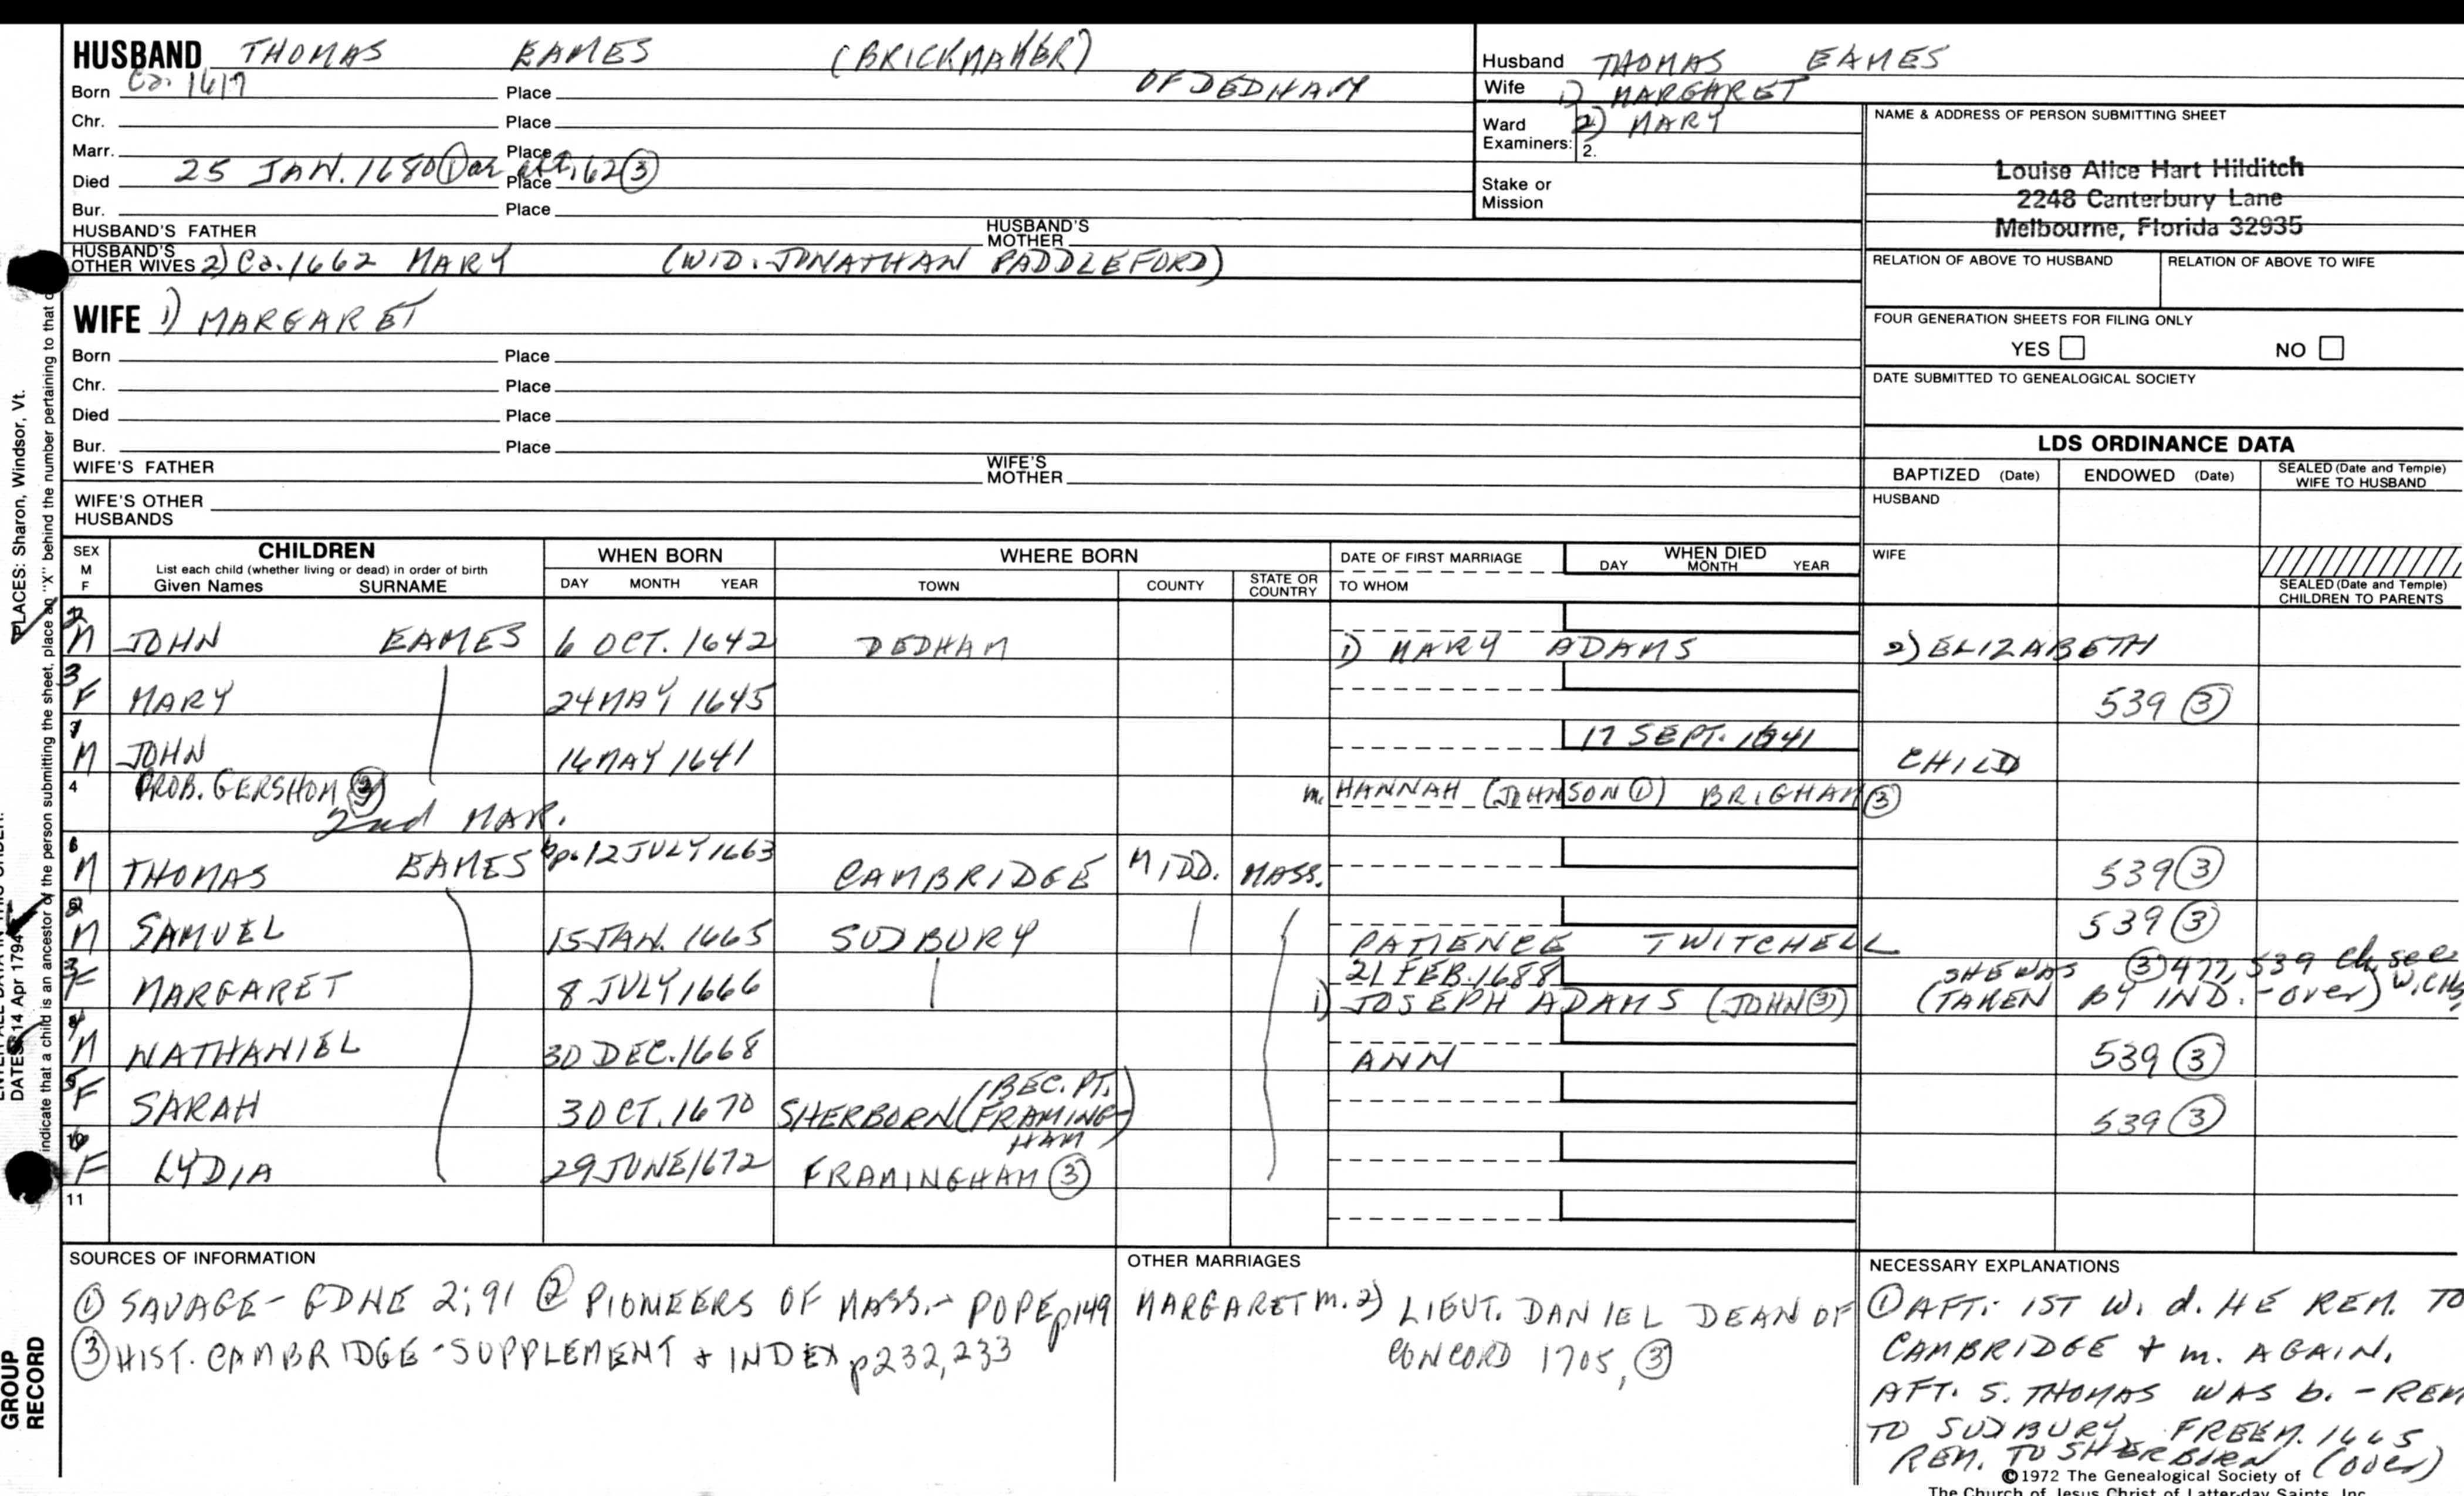 HUSBAND THOMAS EAMES (BRICKMAKER)
OF DEDHAM
Born Ca. 1617 Place
Chr. Place
Marr. Place
Died 25 JAN. 1680 ① or 62 ③ Place
Bur. Place
HUSBAND'S FATHER HUSBAND'S MOTHER
HUSBAND'S OTHER WIVES 2) Ca. 1662 MARY (WID. JONATHAN PADDLEFORD)
Husband THOMAS EAMES
Wife 1) MARGARET
2) MARY
Ward
Examiners: 2.
Stake or
Mission
NAME & ADDRESS OF PERSON SUBMITTING SHEET
Louise Alice Hart Hilditch
2248 Canterbury Lane
Melbourne, Florida 32935
RELATION OF ABOVE TO HUSBAND RELATION OF ABOVE TO WIFE
FOUR GENERATION SHEETS FOR FILING ONLY
YES NO
DATE SUBMITTED TO GENEALOGICAL SOCIETY
WIFE 1) MARGARET
Born Place
Chr. Place
Died Place
Bur. Place
WIFE'S FATHER WIFE'S MOTHER
WIFE'S OTHER
HUSBANDS
LDS ORDINANCE DATA
BAPTIZED (Date) ENDOWED (Date) SEALED (Date and Temple) WIFE TO HUSBAND
HUSBAND
WIFE
SEALED (Date and Temple) CHILDREN TO PARENTS
SEX M F CHILDREN WHEN BORN WHERE BORN DATE OF FIRST MARRIAGE WHEN DIED
List each child (whether living or dead) in order of birth
Given Names SURNAME DAY MONTH YEAR TOWN COUNTY STATE OR COUNTRY TO WHOM DAY MONTH YEAR
2 M JOHN EAMES 6 OCT. 1642 DEDHAM 1) MARY ADAMS 2) ELIZABETH
3 F MARY 24 MAY 1645 539 ③
1 M JOHN 16 MAY 1641 17 SEPT. 1641 CHILD
4 PROB. GERSHOM m. HANNAH (JOHNSON ①) BRIGHAM ③
2nd MAR.
M THOMAS EAMES bp. 12 JULY 1663 CAMBRIDGE MIDD. MASS. 539 ③
M SAMUEL 15 JAN. 1665 SUDBURY PATIENCE TWITCHELL 539 ③
F MARGARET 8 JULY 1666 21 FEB. 1688 1) JOSEPH ADAMS (JOHN ③) SHE WAS ③ 477, 539
(TAKEN BY IND. - over)
M NATHANIEL 30 DEC. 1668 ANN 539 ③
F SARAH 3 OCT. 1670 SHERBORN (BEC. PT. FRAMINGHAM) 539 ③
F LYDIA 29 JUNE 1672 FRAMINGHAM ③
11
SOURCES OF INFORMATION
① SAVAGE - GDNE 2;91 ② PIONEERS OF MASS. - POPE p149
③ HIST. CAMBRIDGE - SUPPLEMENT & INDEX p232, 233
OTHER MARRIAGES
MARGARET m. 2) LIEUT. DANIEL DEAN OF
CONCORD 1705, ③
NECESSARY EXPLANATIONS
① AFT. 1ST W. d. HE REM. TO
CAMBRIDGE & m. AGAIN.
AFT. S. THOMAS WAS b. - REM
TO SUDBURY FREEM. 1665
REM. TO SHERBORN (over)
©1972 The Genealogical Society of
The Church of Jesus Christ of Latter-day Saints, Inc.
PLACES: Sharon, Windsor, Vt.
DATES: 14 Apr 1794
indicate that a child is an ancestor of the person submitting the sheet, place an "X" behind the number pertaining to that
GROUP
RECORD